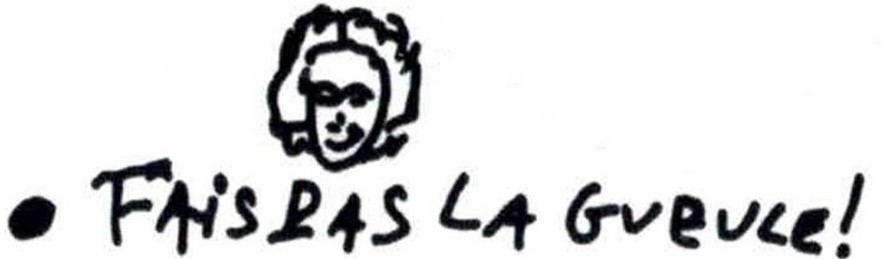 • FAiS PAS LA GUEULe!